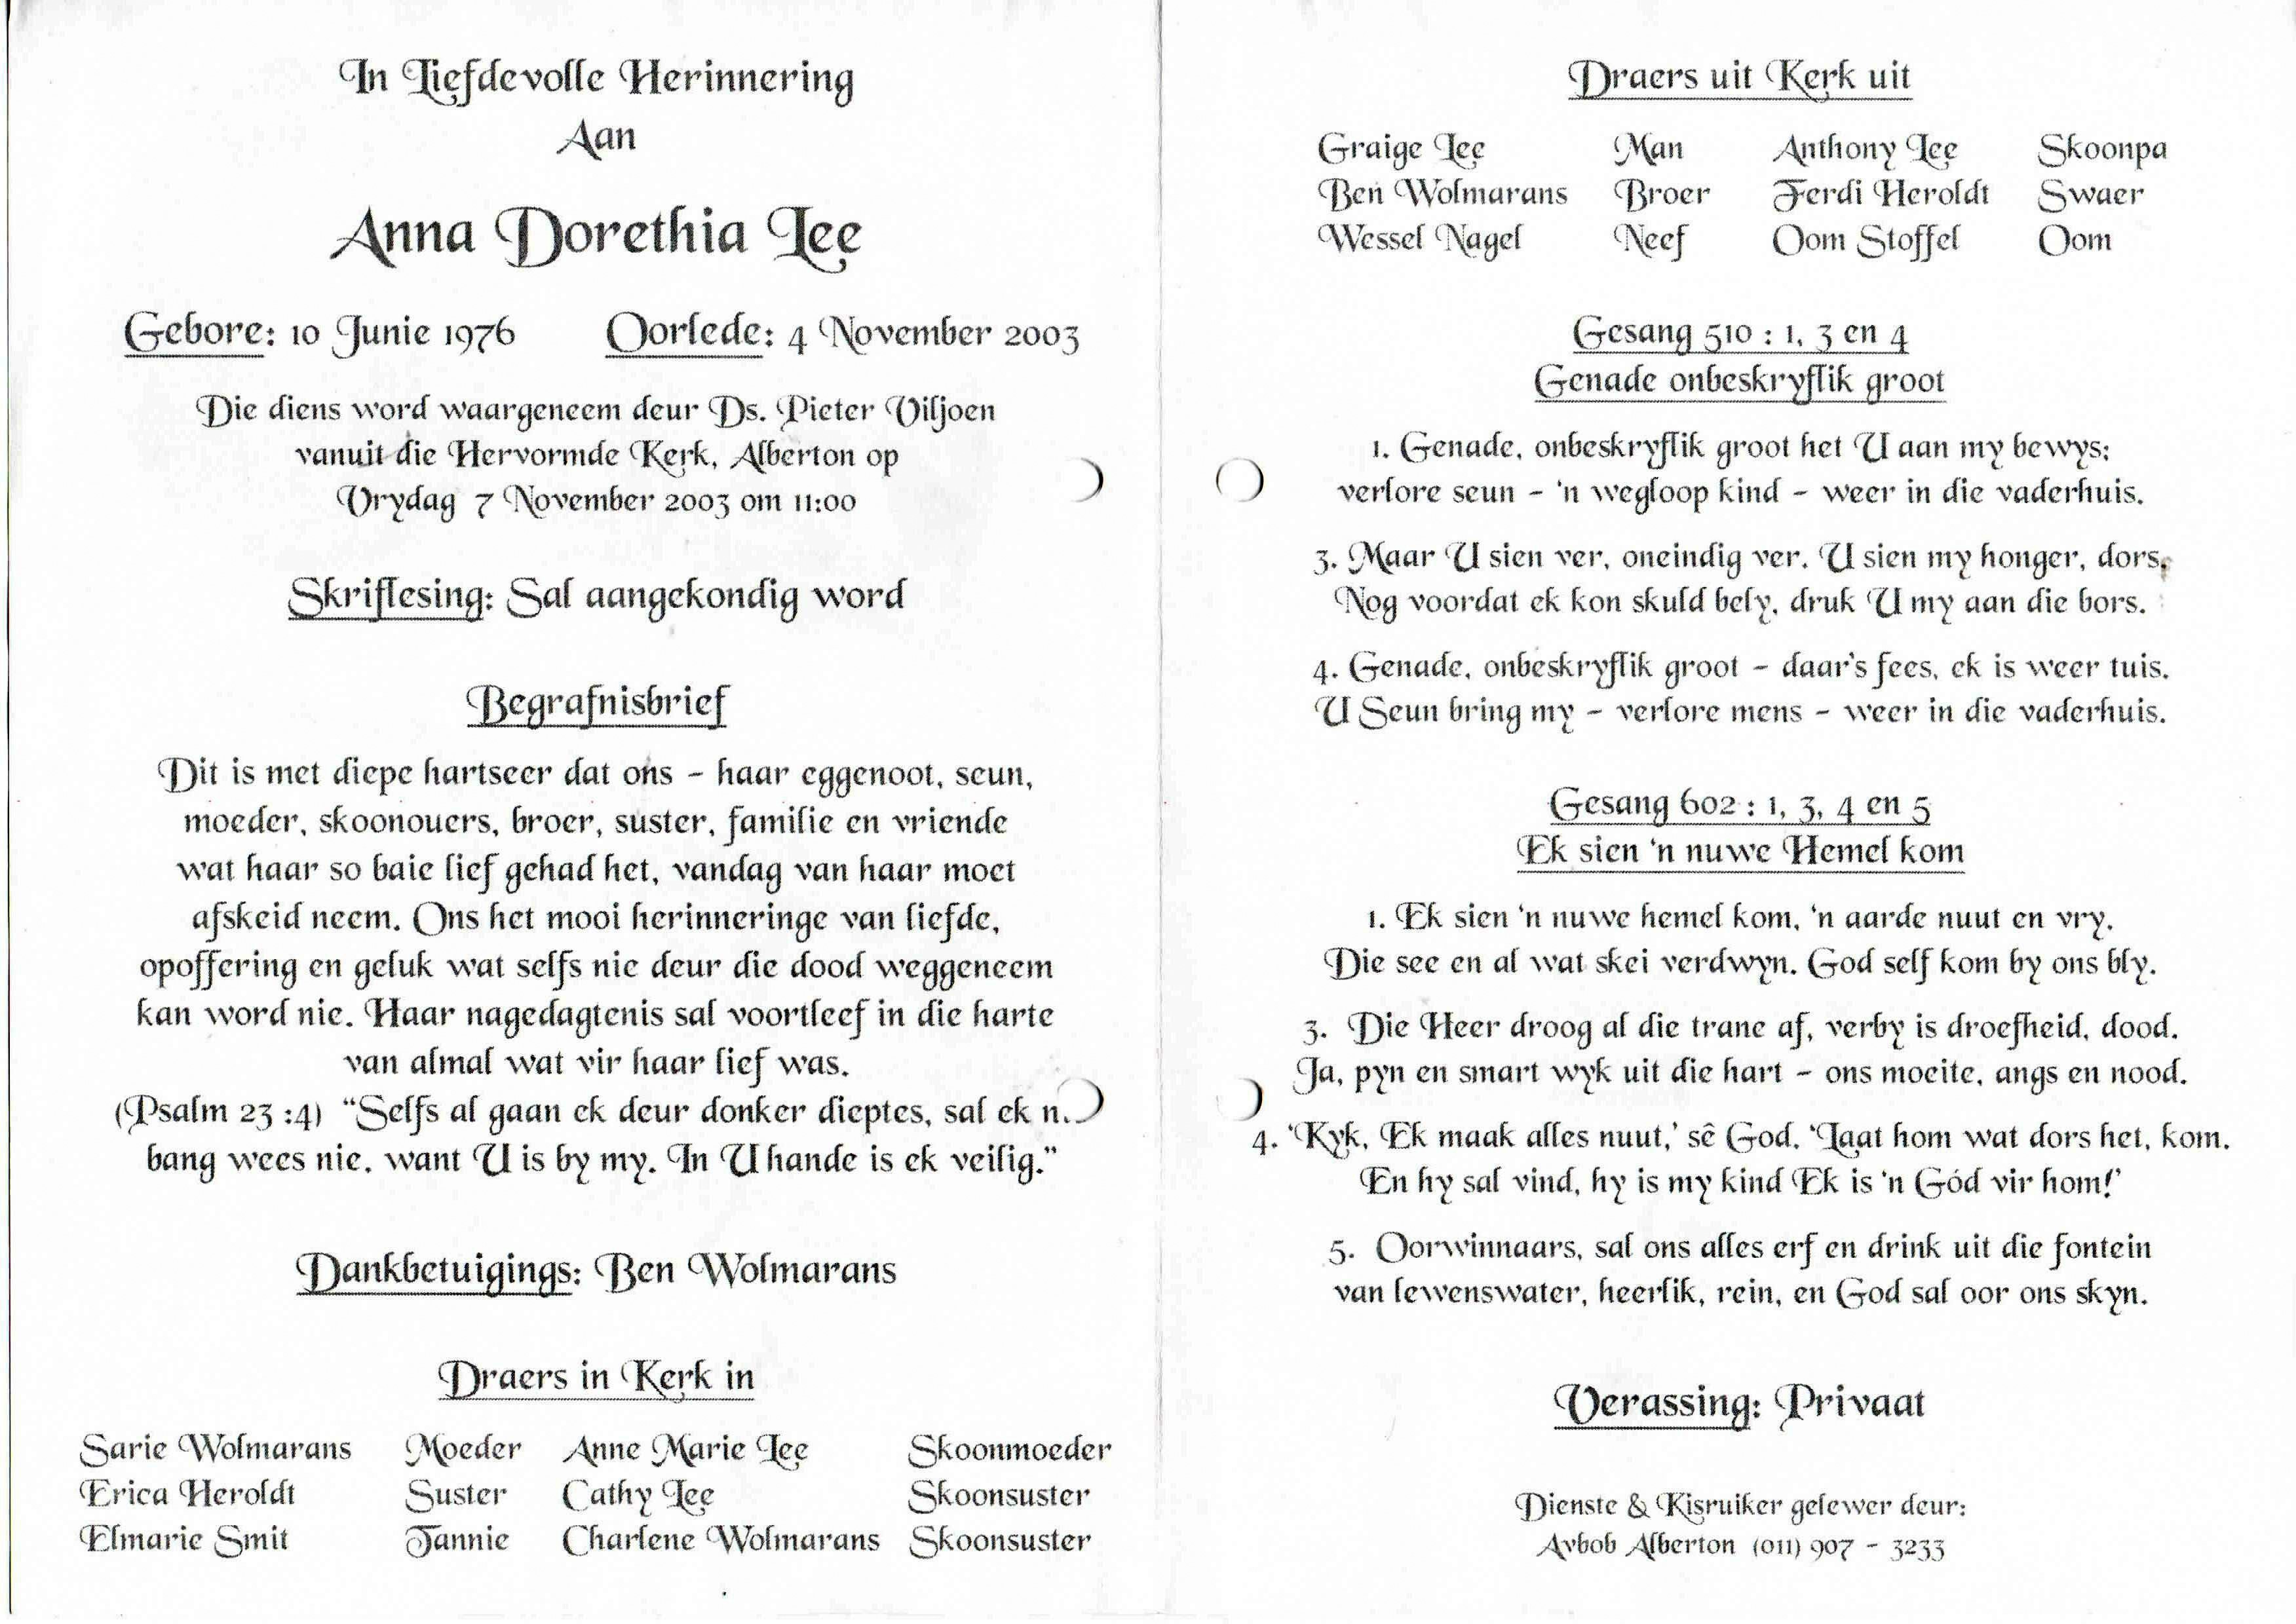 In Liefdevolle Herinnering
Aan
Anna Dorethia Lee
Gebore: 10 Junie 1976 Oorlede: 4 November 2003
Die diens word waargeneem deur Ds. Pieter Viljoen
vanuit die Hervormde Kerk, Alberton op
Vrydag 7 November 2003 om 11:00
Skriflesing: Sal aangekondig word
Begrafnisbrief
Dit is met diepe hartseer dat ons – haar eggenoot, seun,
moeder, skoonouers, broer, suster, familie en vriende
wat haar so baie lief gehad het, vandag van haar moet
afskeid neem. Ons het mooi herinneringe van liefde,
opoffering en geluk wat selfs nie deur die dood weggeneem
kan word nie. Haar nagedagtenis sal voortleef in die harte
van almal wat vir haar lief was.
(Psalm 23 :4) “Selfs al gaan ek deur donker dieptes, sal ek
bang wees nie, want U is by my. In U hande is ek veilig.”
Dankbetuigings: Ben Wolmarans
Draers in Kerk in
Sarie Wolmarans Moeder Anne Marie Lee Skoonmoeder
Erica Heroldt Suster Cathy Lee Skoonsuster
Elmarie Smit Tannie Charlene Wolmarans Skoonsuster
Draers uit Kerk uit
Graige Lee Man Anthony Lee Skoonpa
Ben Wolmarans Broer Ferdi Heroldt Swaer
Wessel Nagel Neef Oom Stoffel Oom
Gesang 510 : 1, 3 en 4
Genade onbeskryflik groot
1. Genade, onbeskryflik groot het U aan my bewys;
verlore seun – 'n wegloop kind – weer in die vaderhuis.
3. Maar U sien ver, oneindig ver. U sien my honger, dors,
Nog voordat ek kon skuld bely, druk U my aan die bors.
4. Genade, onbeskryflik groot – daar's fees, ek is weer tuis.
U Seun bring my – verlore mens – weer in die vaderhuis.
Gesang 602 : 1, 3, 4 en 5
Ek sien 'n nuwe Hemel kom
1. Ek sien 'n nuwe hemel kom, 'n aarde nuut en vry.
Die see en al wat skei verdwyn. God self kom by ons bly.
3. Die Heer droog al die trane af, verby is droefheid, dood.
Ja, pyn en smart wyk uit die hart – ons moeite, angs en nood.
4. 'Kyk, Ek maak alles nuut,' sê God. 'Laat hom wat dors het, kom.
En hy sal vind, hy is my kind Ek is 'n Gód vir hom!'
5. Oorwinnaars, sal ons alles erf en drink uit die fontein
van lewenswater, heerlik, rein, en God sal oor ons skyn.
Verassing: Privaat
Dienste & Kisruiker gelewer deur:
Avbob Alberton (011) 907 - 3233